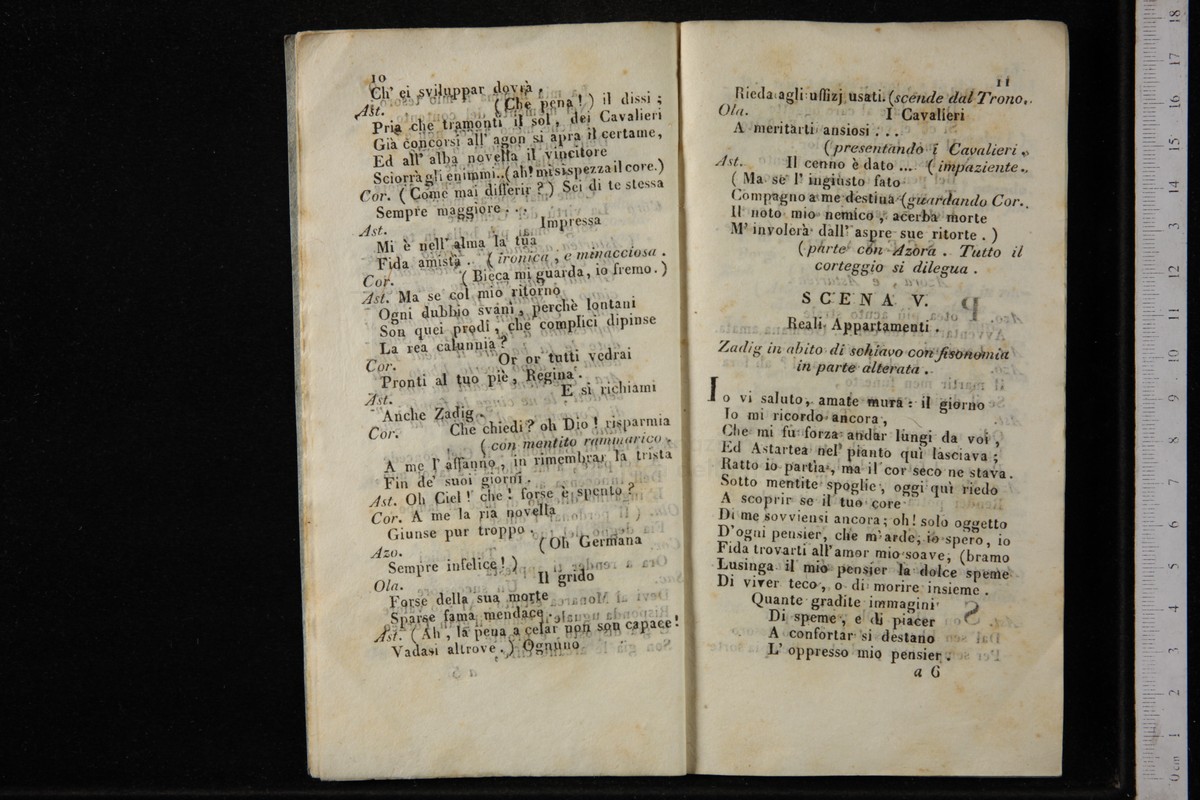 10
Ch' ei sviluppar dovrà .
Ast. (Che pena!) il dissi ;
Pria che tramonti il sol, dei Cavalieri
Già concorsi all' agon si apra il certame,
Ed all' alba novella il vincitore
Sciorrà gli enimmi..(ah! mi si spezza il core.)
Cor. (Come mai differir?) Sei di te stessa
Sempre maggiore . . .
Ast. Impressa
Mi è nell' alma la tua
Fida amistà . (ironica, e minacciosa .
Cor. (Bieca mi guarda, io fremo.)
Ast. Ma se col mio ritorno
Ogni dubbio svanì, perchè lontani
Son quei prodi, che complici dipinse
La rea calunnia?
Cor. Or or tutti vedrai
Pronti al tuo piè, Regina .
Ast. E si richiami
Anche Zadig .
Cor. Che chiedi? oh Dio! risparmia
(con mentito rammarico .
A me l' affanno, in rimembrar la trista
Fin de' suoi giorni .
Ast. Oh Ciel! che! forse è spento?
Cor. A me la ria novella
Giunse pur troppo .
Azo. (Oh Germana
Sempre infelice!)
Ola. Il grido
Forse della sua morte
Sparse fama mendace .
Ast. (Ah, la pena a celar non son capace!
Vadasi altrove .) Ognuno
11
Rieda agli uffizj usati. (scende dal Trono.
Ola. I Cavalieri
A meritarti ansiosi . . .
(presentando i Cavalieri .
Ast. Il cenno è dato ... (impaziente .
(Ma se l' ingiusto fato
Compagno a me destina (guardando Cor.
Il noto mio nemico, acerba morte
M' involerà dall' aspre sue ritorte .)
(parte con Azora . Tutto il
corteggio si dilegua .
SCENA V.
Reali Appartamenti .
Zadig in abito di schiavo con fisonomia
in parte alterata .
Io vi saluto, amate mura: il giorno
Io mi ricordo ancora,
Che mi fù forza andar lungi da voi,
Ed Astartea nel pianto quì lasciava ;
Ratto io partìa, ma il cor seco ne stava.
Sotto mentite spoglie, oggi quì riedo
A scoprir se il tuo core
Di me sovviensi ancora; oh! solo oggetto
D' ogni pensier, che m' arde, io spero, io
Fida trovarti all' amor mio soave, (bramo
Lusinga il mio pensier la dolce speme
Di viver teco, o di morire insieme .
Quante gradite immagini
Di speme, e di piacer
A confortar si destano
L' oppresso mio pensier .
a 6